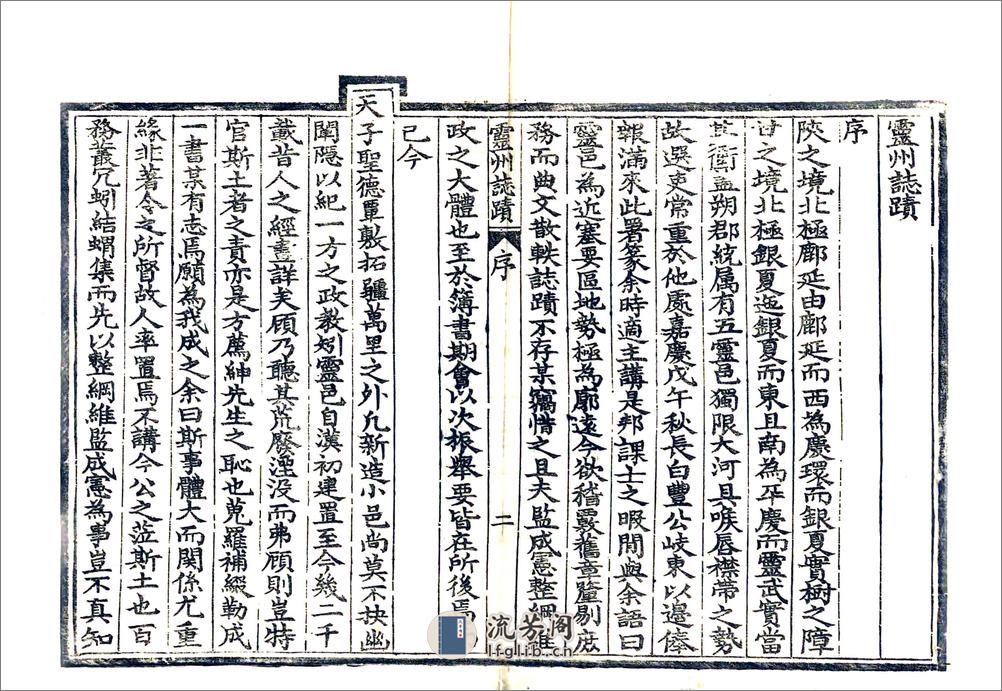 靈州誌蹟
序
陝之境北極鄜延由鄜延而西為慶環而銀夏實樹之障
甘之境北極銀夏迤銀夏而東且南為平慶而靈武實當
其衝盖朔郡統属有五靈邑獨限大河具喉唇襟帶之勢
故選吏常重於他處嘉慶戊午秋長白豐公岐東以邊俸
報滿來此署篆余時適主講是邦課士之暇閒與余語曰
靈邑為近塞要區地勢極為廓遠今欲稽覈舊章釐剔庶
務而典文散軼誌蹟不存某竊惜之且夫監成憲整綱維
政之大體也至於簿書期會以次振舉要皆在所後焉
已今
天子聖德覃敷拓疆萬里之外凢新造小邑尚莫不抉幽
闡隱以紀一方之政教矧靈邑自漢初建置至今幾二千
載昔人之經畫詳矣顧乃聽其荒廢湮没而弗顧則豈特
官斯土者之責亦是方薦紳先生之恥也蒐羅補綴勒成
一書某有志焉願為我成之余曰斯事體大而関係尤重
緣非著令之所督故人率置焉不講今公之蒞斯土也百
務叢冗蚓結蝟集而先以整綱維監成憲為事豈不真知
靈州誌蹟 序 二
流芳阁
lfglib.ch